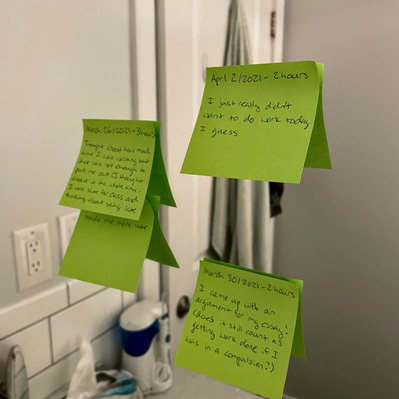 March 26/2021-3hours
Thought about how much
time I was wasting but
that was not enough to
pull me out (I thought
about it the whole time.
I was late for class and
thinking about being late
made me more late
April 2/2021-2hours
I just really didn't
want to do work today
I guess
March 30/2021-2hours
I came up with an
argument for my essay!
(does it still count as
getting work done if I
was in a compulsion?)